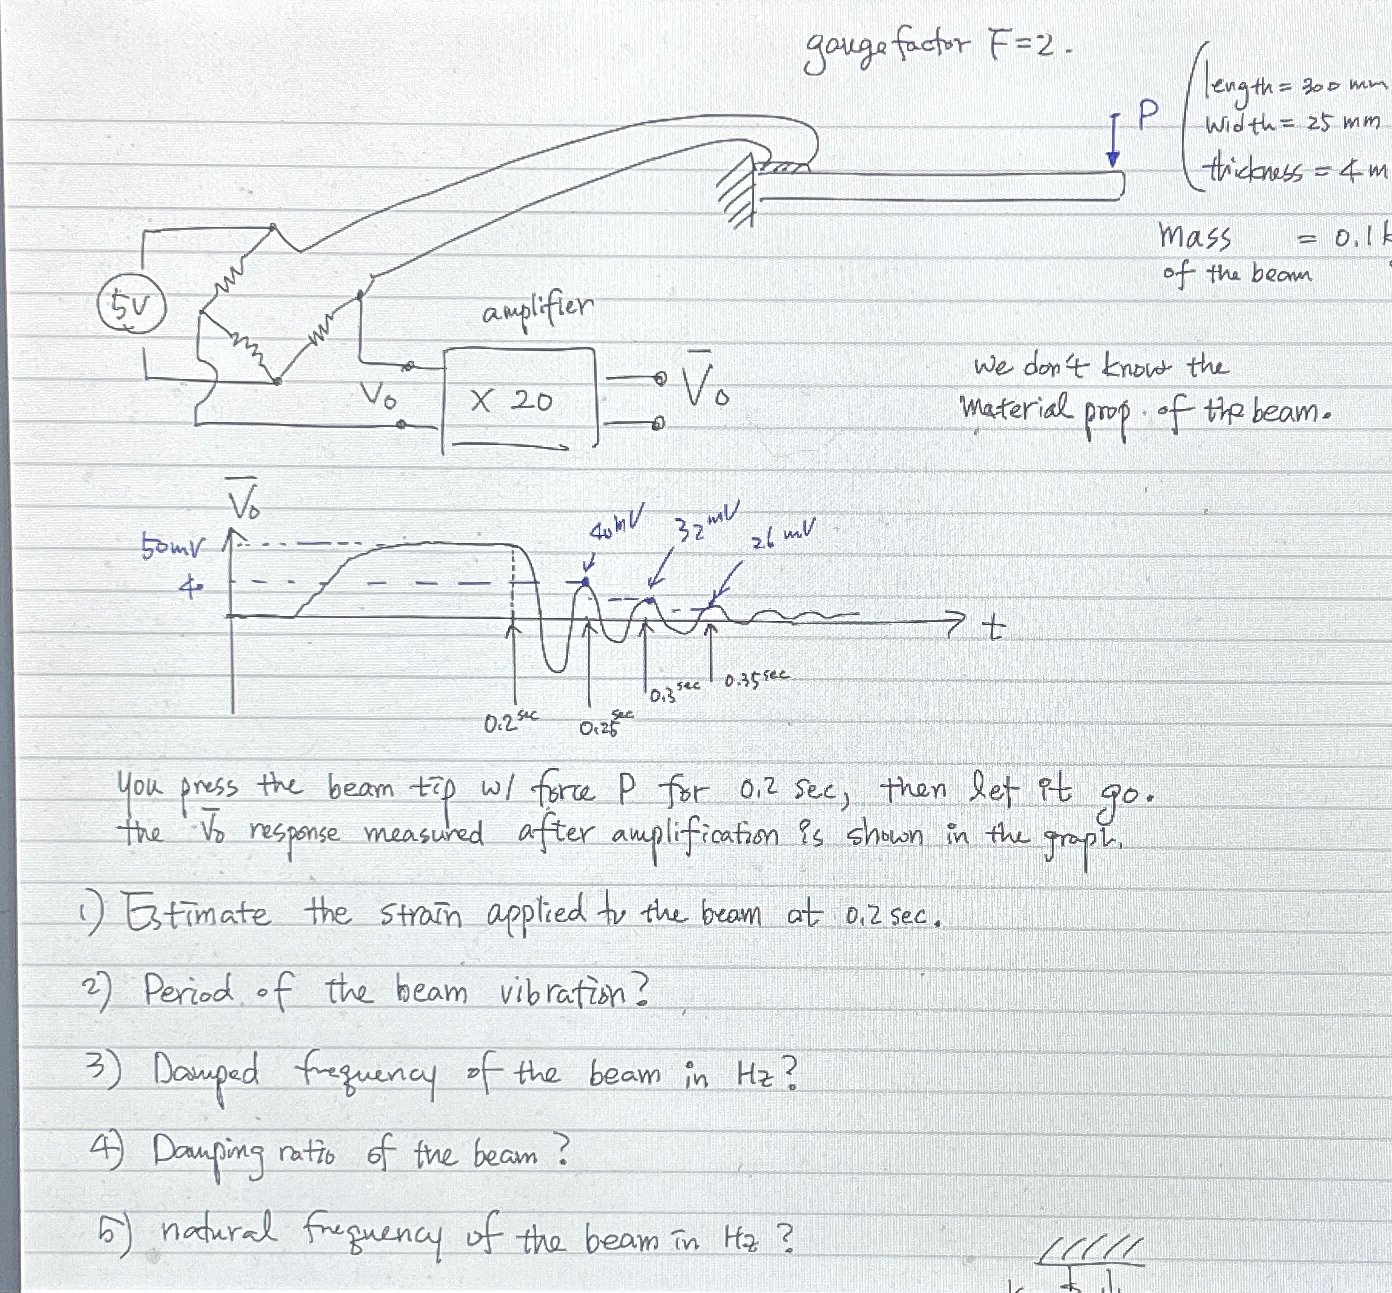 gauge factor F=2.
length = 300 mm
width = 25 mm
thickness = 4 m
P
mass = 0.1 k
of the beam
5V
amplifier
X 20
Vo
V̅o
we don't know the
material prop. of the beam.
V̅o
50mV
40
40mV
32 mV
26 mV
t
0.2 sec
0.25 sec
0.3 sec
0.35 sec
You press the beam tip w/ force P for 0.2 sec, then let it go.
the V̅o response measured after amplification is shown in the graph.
1) Estimate the strain applied to the beam at 0.2 sec.
2) Period of the beam vibration?
3) Damped frequency of the beam in Hz?
4) Damping ratio of the beam?
5) natural frequency of the beam in Hz?